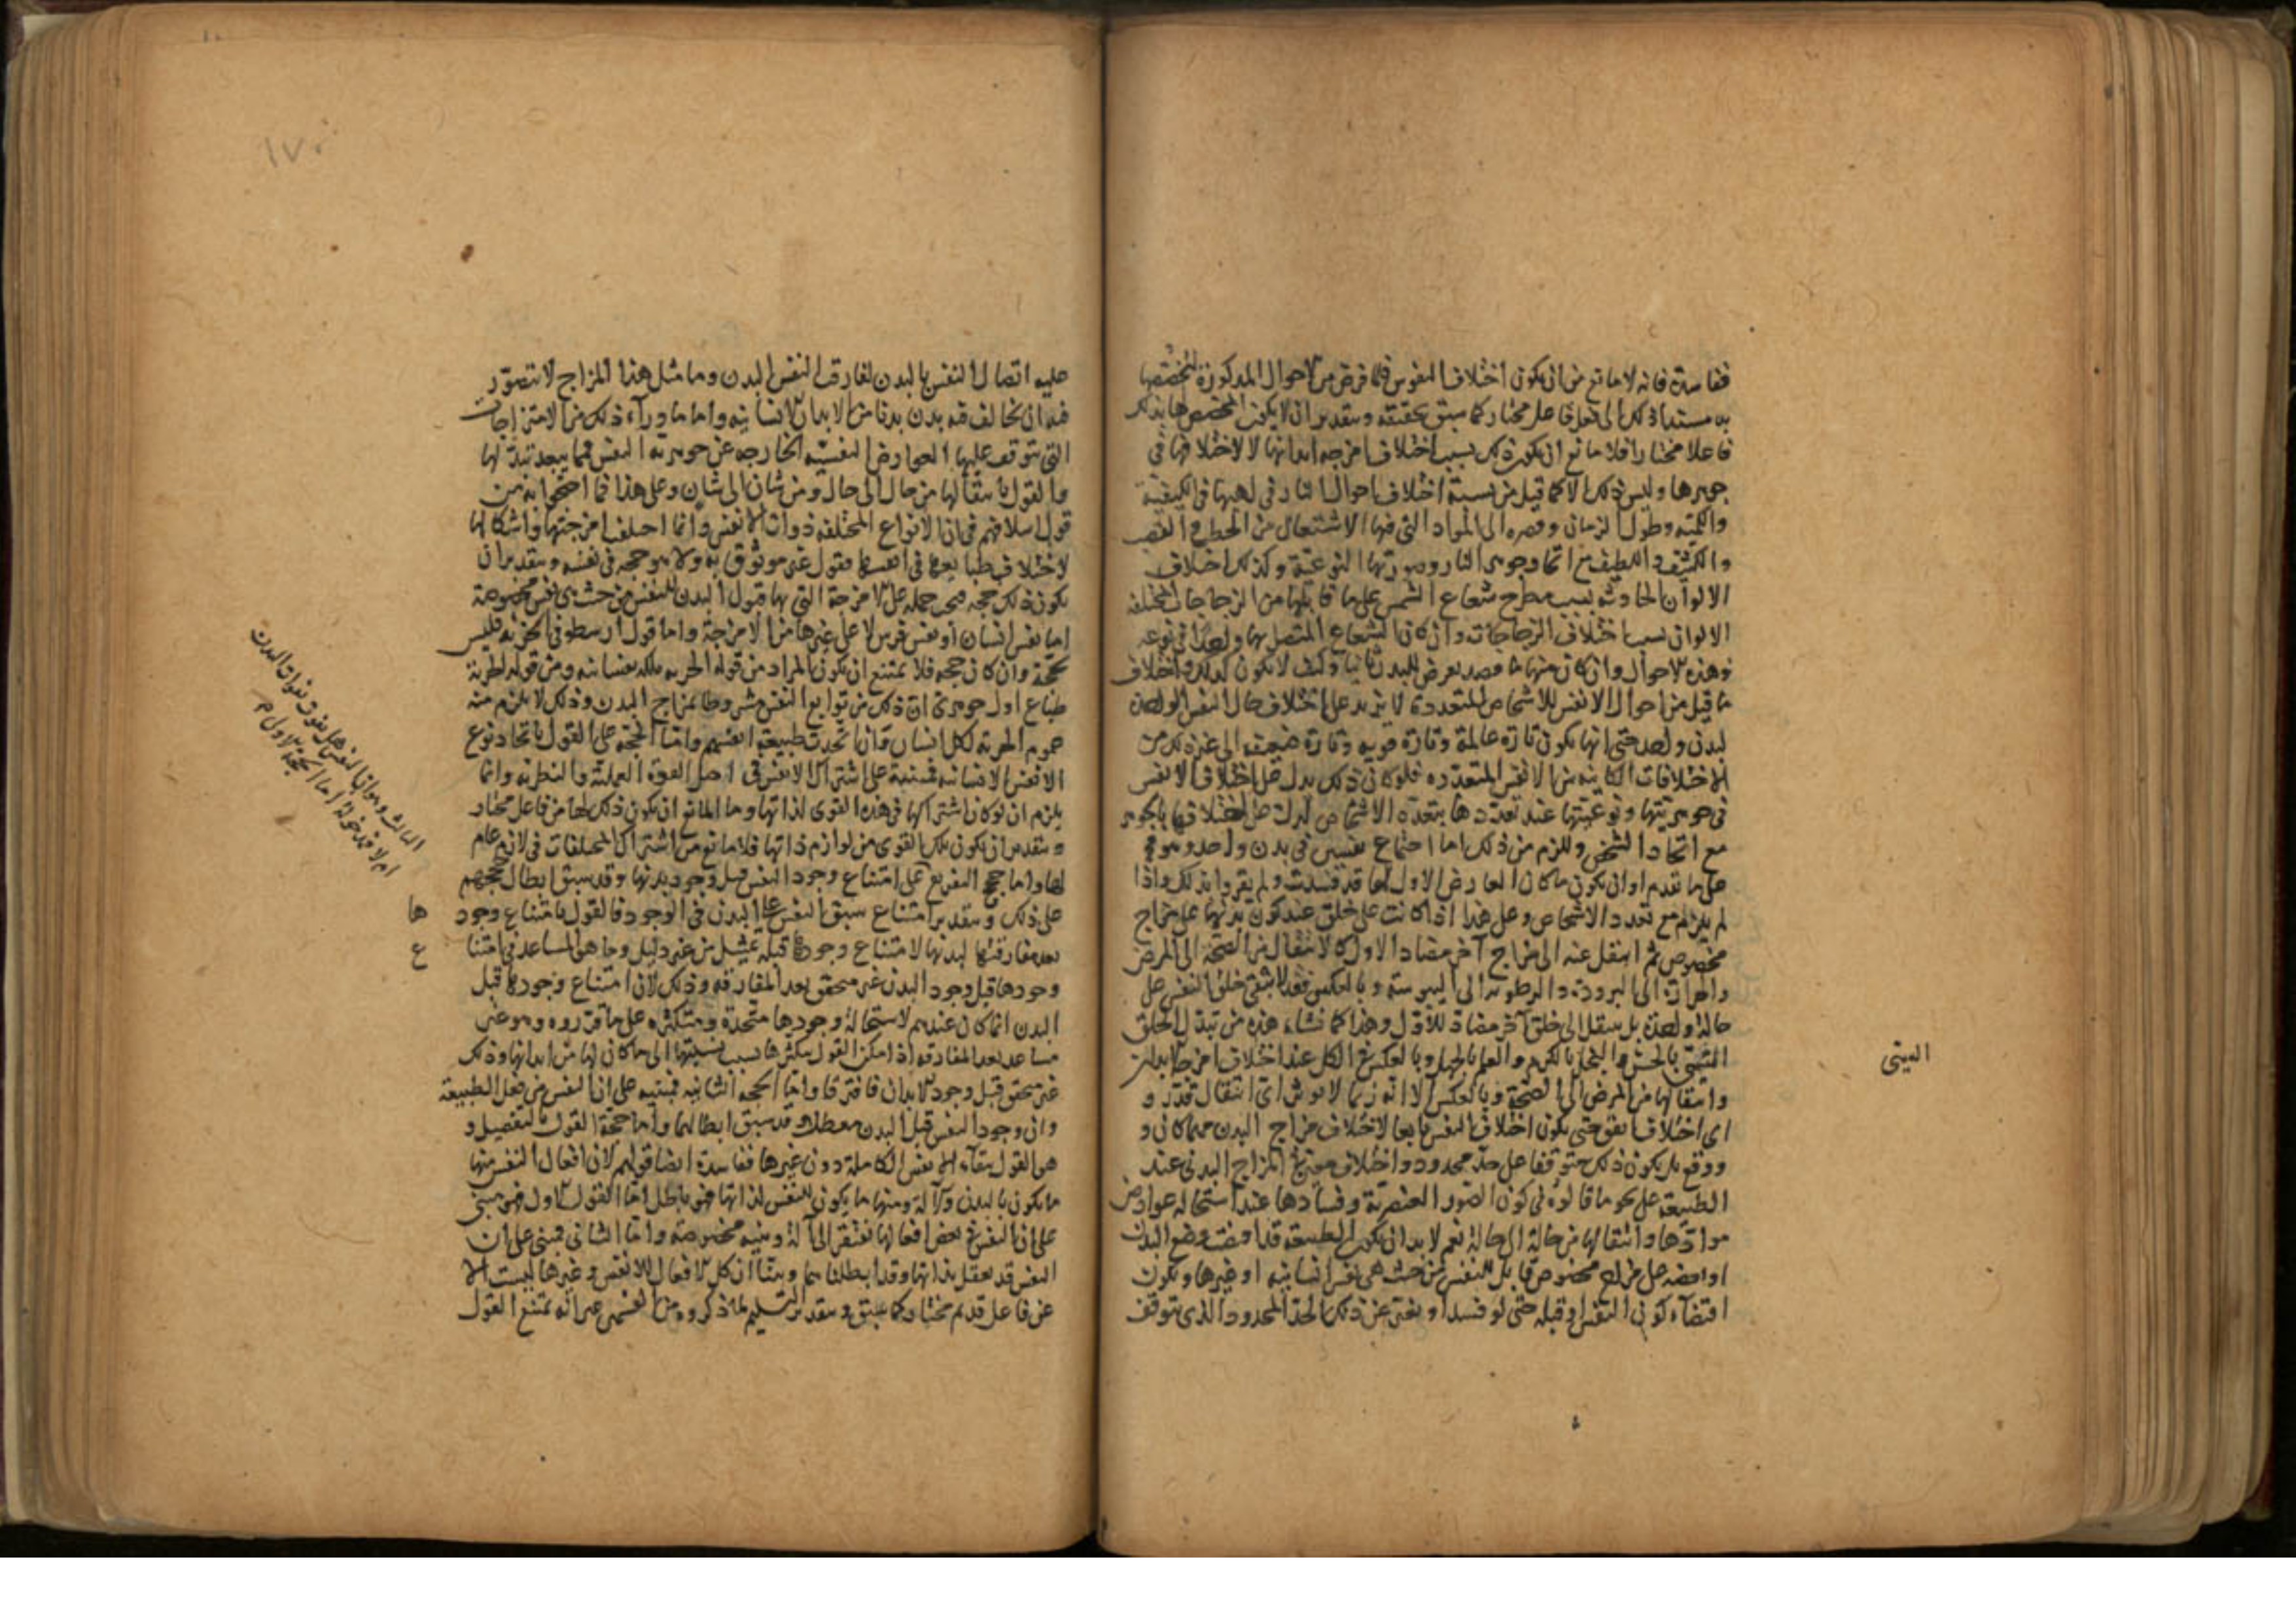 ففاسدة فانه لا مانع من ان يكون اختلاف النفوس فيما فرض من الاحوال المذكورة لتخصصها
به مستندا ذلك الى فعل فاعل مختار كما سبق تحقيقه وبتقدير ان لا يكون المخصص لها بذلك
فاعلا مختارا فلا مانع ان يكون ذلك بسبب اختلاف امزجة ابدانها لا لاختلافها في
جوهرها وليس ذلك الا كما قيل من نسبة اختلاف احوال النار في لهبها في الكيفية
والكمية وطول الزمان وقصره الى المواد التي فيها الاشتعال من الحطب والقصب
والكثيف واللطيف مع اتحاد جوهر النار وصورتها النوعية وكذلك اختلاف
الالوان الحادثة بسبب مطرح شعاع الشمس على ما قابلها من الزجاجات المختلفة
الالوان بسبب اختلاف الزجاجات وان كان الشعاع المتصل بها واحدا في نوعه
وهذه الاحوال وان كان منها ما يعرض للبدن ثانيا وكيف لا يكون كذلك واختلاف
ما قيل من احوال الانفس للاشخاص المتعددة لا يزيد على اختلاف حال النفس الواحدة
لبدن واحد حتى انها يكون تارة عالمة وتارة قوية وتارة ضعيفة الى غير ذلك من
الاختلافات الكاينة من الانفس المتعددة فلو كان ذلك يدل على اختلاف الانفس
في جوهريتها ونوعيتها عند تعددها بتعدد الاشخاص لدل على اختلافها بالجوهر
مع اتحاد الشخص ويلزم من ذلك اما اجتماع نفسين في بدن واحد وهو مح
على ما تقدم او ان يكون ما كان العارض الاول لها قد فسدت ولم يقروا بذلك واذا
لم يلزم مع تعدد الاشخاص وعلى هذا اذا كانت على خلق عند كون بدنها على مزاج
مخصوص ثم انتقل عنه الى مزاج آخر مضاد الاول كالانتقال من الصحة الى المرض
والحرارة الى البرودة والرطوبة الى اليبوسة وبالعكس فقد لا تبقى خلق النفس على
حالة واحدة بل ينتقل الى خلق آخر مضاد للاول وهذا كما نشاهده من تبدل الخلق
بالحسن والبخل بالكرم والعلم بالجهل وبالعكس في الكل عند اختلاف امزجة الابدان
وانتقالها من المرض الى الصحة وبالعكس الا انه ربما لا يوثر اي انتقال قدر و
اي اختلاف اتفق حتى يكون اختلاف النفس تابعا لاختلاف مزاج البدن مهما كان و
ووقع بل يكون ذلك متوقفا على حد محدود واختلاف المزاج البدني عند
الطبيعة على نحو ما قالوه في كون الصور العنصرية وفسادها عند استحالة عوارض
موادها وانتقالها من حالة الى حالة نعم لا بد ان يكون الطبيعة قد اوقفت وضع البدن
على مزاج مخصوص قابل للنفس من حيث هي نفس انسانية او غيرها ويكون
اقتضاء كون النفس وقبله حتى لو فسد او تغير عن ذلك الحد المحدود الذي يتوقف
العيتي
١٧٠
عليه اتصال النفس بالبدن لفارقت النفس البدن وما مثل هذا المزاج لا يتصور
فيه ان تخالف فيه بدن بدنا من الابدان الانسانية واما ما وراء ذلك من الامتزاجات
التي يتوقف عليها العوارض النفسية الخارجة عن جوهرية النفس فمما يبعد تبدلها
والقول بانتقالها من حال الى حال ومن شان الى شان وعلى هذا فما احتجوا به من
قول اسلافهم في ان الانواع المختلفة ذوات الانفس وانما اختلف امزجتها واشكالها
لاختلاف طبايعها في انفسها فقول غير موثوق به ولا هو حجة في نفسه وبتقدير ان
يكون ذلك حجة فيجب حمله على الامزجة التي بها قبول البدن للنفس من حيث هي نفس مخصوصة
اما نفس انسان او نفس فرس لا على غيرها من الامزجة واما قول ارسطو في الحرية فليس
بحجة وان كان حجة فلا يمتنع ان يكون المراد من قوله الحرية ملكة نفسانية ومن قوله لحرية
طباع اول جوهري ان ذلك من توابع النفس مشروطا بمزاج البدن وذلك لا يلزم منه
عموم الحرية لكل انسان وان اتحدت طبيعة انفسهم واما الحجة على القول باتحاد نوع
الانفس الانسانية فمبنية على اشتراك الانفس في اصل القوة العملية والنظرية وانما
يلزم ان لو كان اشتراكها في هذه القوى لذاتها وما المانع ان يكون ذلك لها من فاعل مختار
وبتقدير ان يكون تلك القوى من لوازم ذاتها فلا مانع من اشتراك المختلفات في لازم عام
لها واما حجج التفريع على امتناع وجود النفس قبل وجود بدنها وقد سبق ابطال حججهم
على ذلك وبتقدير امتناع سبق النفس على البدن في الوجود فالقول بامتناع وجودها
بعد مفارقتها لبدنها لامتناع وجودها قبله تمثيل من غير دليل وما هو المساعد في امتناع
وجودها قبل وجود البدن غير متحقق بعد المفارقة وذلك لان امتناع وجودها قبل
البدن انما كان عندهم لاستحالة وجودها متحدة ومتكثرة على ما قرروه وهو غير
مساعد بعد المفارقة اذ امكن القول بتكثرها بسبب نسبتها الى ما كان لها من ابدانها وذلك
غير متحقق قبل وجود الابدان فافترقا واما الحجة الثانية فمبنية على ان النفس من فعل الطبيعة
وان وجود النفس قبل البدن معطلة وقد سبق ابطالهما واما حجة القول بالتفصيل و
هو القول ببقاء الانفس الكاملة دون غيرها ففاسدة ايضا قولهم لان افعال النفس منها
ما يكون بالبدن وآلة ومنها ما يكون للنفس لذاتها فهو باطل اما القول الاول فهو مبني
على ان النفس في بعض افعالها تفتقر الى آلة وبنية مخصوصة واما الثاني فمبني على ان
النفس قد تعقل بذاتها وقد ابطلناهما وبينا ان كل الافعال للانفس وغيرها ليست الا
عن فاعل قديم مختار كما سبق وبتقدير التسليم لما ذكروه من القسمين غير انه يمتنع القول